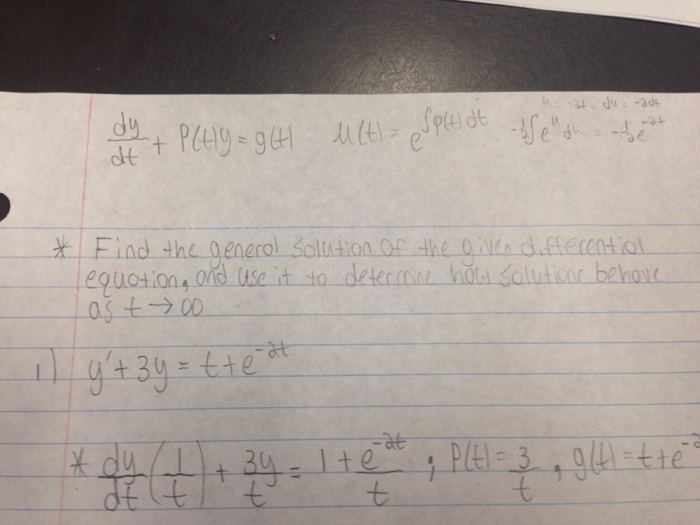 u = -2t = du = -2dt
dy/dt + P(t)y = g(t) μ(t) = e^∫p(t)dt -1/2∫e^u du = -1/2e^-2t
* Find the general solution of the given differential
equation, and use it to determine how solutions behave
as t → ∞
1) y' + 3y = t + e^-2t
* dy/dt (1/t) + 3y/t = 1 + e^-2t/t ; P(t) = 3/t , g(t) = t + e^-2